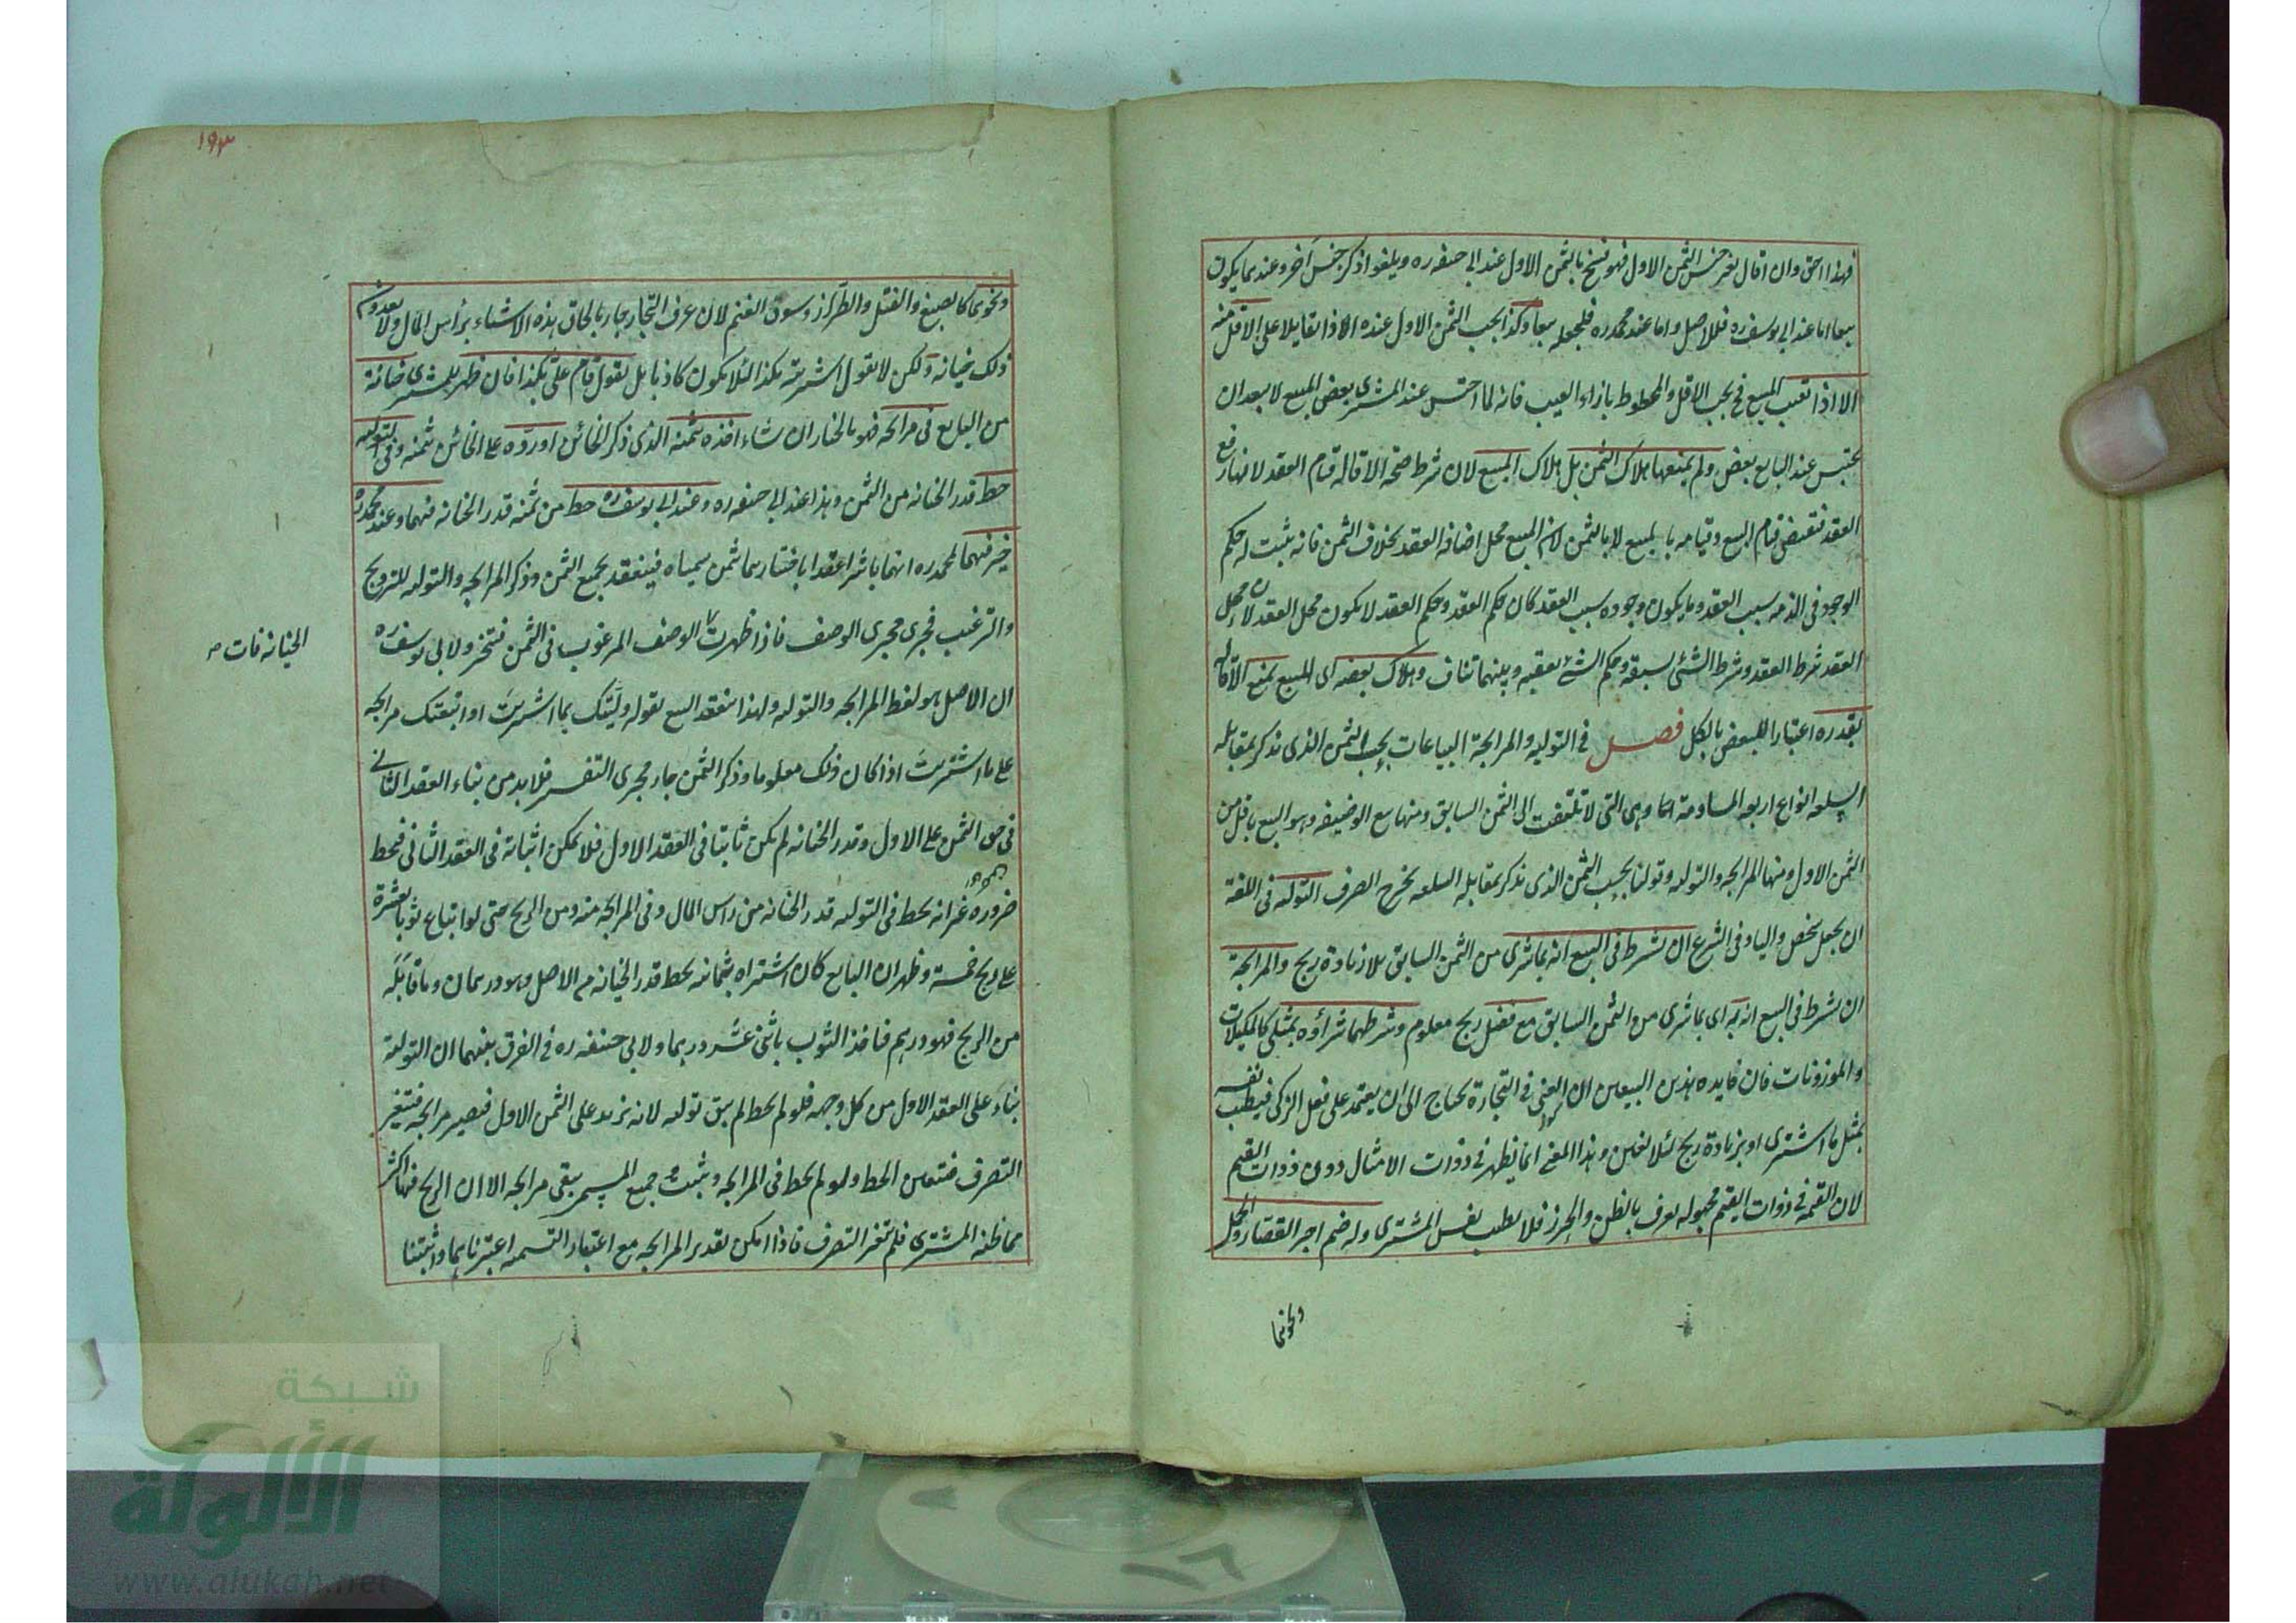 فهذا احق وان اقال بغير جنس الثمن الاول فهو فسخ بالثمن الاول عند ابي حنيفه ره ويلغو اذكر جنس آخر وعندهما يكون
بيعا اما عند ابي يوسف ره فللاصل واما عند محمد ره فلجعله بيعا وكذا يجب الثمن الاول عنده اذا تقايلا على الاقل منه
الا اذا تعيب المبيع فح يجب الاقل والمحطوط بازاء العيب فانه لما احتبس عند المشتري بعض المبيع لا بعد ان
يحتبس عند البايع بعض ولم يمنعها هلاك الثمن بل هلاك المبيع لان شرط صحة الاقاله قيام العقد لانها رفع
العقد فتقتضي قيام البيع وقيامه بالمبيع لا بالثمن لان المبيع محل اضافة العقد بخلاف الثمن فانه يثبت له حكم
الوجود في الذمه بسبب العقد وما يكون وجوده بسبب العقد كان حكم العقد وحكم العقد لا يكون محل العقد لان محل
العقد شرط العقد وشرط الشئ يسبقه وحكم الشئ يعقبه وبينهما تناف وهلاك بعضه اى المبيع يمنع الاقاله
بقدره اعتبارا للبعض بالكل فصل في التوليه والمرابحة البياعات بحسب الثمن الذى يذكر بمقابله
السلعه انواع اربعه المساومة وهى التى لا تلتفت الى الثمن السابق ومنها بيع الوضيعه وهو البيع باقل من
الثمن الاول ومنها المرابحه والتوليه وقولنا بحسب الثمن الذى يذكر بمقابله السلعه يخرج الصرف التوليه في اللغة
ان يجعل شخص واليا وفى الشرع ان يشترط في البيع انه بما شرى من الثمن السابق بلا زيادة ربح والمرابحة
ان يشترط في البيع انه به اى بما شرى من الثمن السابق مع فضل ربح معلوم وشرطهما شراؤه بمثلى كالمكيلات
والموزونات فان فايده هذين البيعين ان الغبى في التجارة يحتاج الى ان يعتمد على فعل الزكى فيطيب نفسه
بمثل ما اشترى او بزيادة ربح لئلا يغبن وهذا المعنى انما يظهر في ذوات الامثال دون ذوات القيم
لان القيمه في ذوات القيم مجهوله يعرف بالظن والحرز فلا يطيب نفس المشترى وله ضم اجر القصار والحمل
ونحوهما
١٩٣
ونحوهما كالصبغ والفتل والطراز وسوق الغنم لان عرف التجار جار بالحاق هذه الاشياء برأس المال ولا يعدون
ذلك خيانه ولكن لا يقول اشتريته بكذا لئلا يكون كاذبا بل يقول قام على بكذا فان ظهر للمشترى خيانة
من البايع فى مرابحه فهو بالخيار ان شاء اخذه بثمنه الذى ذكر الخائن او رده على الخائن ثمنه وفى التوليه
حط قدر الخيانه من الثمن وهذا عند ابى حنيفه ره وعند ابى يوسف ره حط من ثمنه قدر الخيانه فيهما وعند محمد ره
خير فيهما لمحمد ره انهما باشرا عقدا باختيارهما ثمن سمياه فينعقد بجميع الثمن وذكر المرابحه والتوليه للترويج
والترغيب فجرى مجرى الوصف فاذا ظهرت الوصف المرغوب فى الثمن فتخير ولابى يوسف ره
الخيانه فات
ان الاصل هو لفظ المرابحه والتوليه ولهذا ينعقد البيع بقوله وليتك بما اشتريت او ابتعتك مرابحه
على ما اشتريت اذا كان ذلك معلوما وذكر الثمن جار مجرى التفسير فلا بد من بناء العقد الثانى
فى حق الثمن على الاول وقدر الخيانه لم يكن ثابتا فى العقد الاول فلا يمكن اثباته فى العقد الثانى فيحط
ضروره غير انه يحط فى التوليه قدر الخيانه من راس المال وفى المرابحه منه ومن الربح حتى لو ابتاع ثوبا بعشرة
على ربح خمسة وظهر ان البايع كان اشتراه بثمانيه يحط قدر الخيانه من الاصل وهو درهمان وما قابله
من الربح فهو درهم فياخذ الثوب باثنى عشر درهما ولابي حنيفه ره فى الفرق بينهما ان التولية
بناء على العقد الاول من كل وجه فلو لم يحط لم يبق توليه لانه يزيد على الثمن الاول فيصير مرابحه فتغير
التصرف فتعين الحط ولو لم يحط فى المرابحه وثبت جميع المسمى يبقى مرابحه الا ان الربح فيها اكثر
مما ظنه المشترى فلم يتغير التصرف فاذا امكن تقدير المرابحه مع اعتبار التسميه اعتبرناهما واثبتنا
شبكة
الألوكة
www.alukah.net